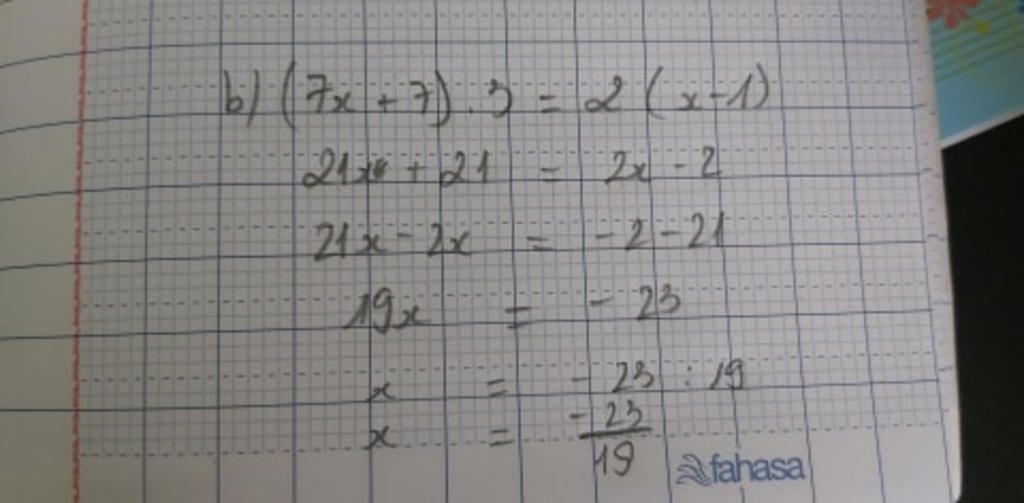 b) (7x + 7) . 3 = 2 (x - 1)
21x + 21 = 2x - 2
21x - 2x = - 2 - 21
19x = - 23
x = - 23 : 19
x = -23/19
fahasa